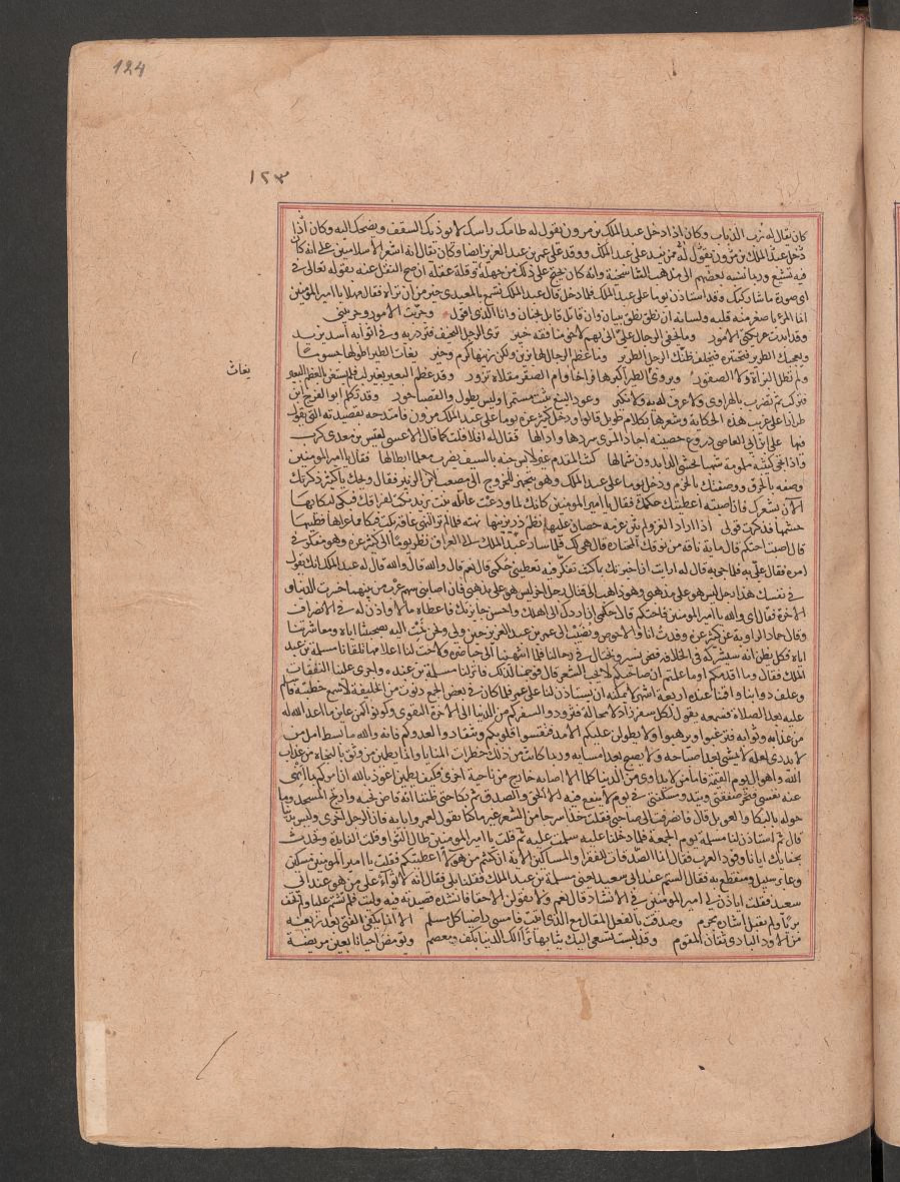 124
١٢٣
كان يقال له زب الذباب وكان اذا دخل عبد الملك بن مرون يقول له طامن راسك لا يوذيك السقف ويضحك اليه وكان اذا
دخل عبد الملك بن مرون يقول له وفد على عبد الملك ووفد على عمر بن عبد العزيز ايضا وكان يقال انه اشعر الاسلاميين على انه كان
فيه تشيع وربما نسبه بعضهم الى مذهب التناسخية وانه كان يحتج على ذلك من جهله وقلة عقله ان صح النقل عنه بقوله تعالى في
اى صورة ما شا ركبك وقد استاذن يوما على عبد الملك فلما دخل قال عبد الملك تسمع بالمعيدى خير من ان تراه فقال مهلا يا امير المؤمنين
انما المرء باصغريه قلبه ولسانه ان نطق نطق ببيان وان قاتل قاتل بجنان وانا الذى اقول وجربت الامور وجربتنى
وقد ابدت عريكتى الامور وما تخفى الرجال علىّ انى بهم لاخو مثاقفه خبير ترى الرجل النحيف فتزدريه وفى اثوابه اسد يزيد
ويعجبك الطرير فتبتليه فيخلف ظنك الرجل الطرير وما عظم الرجال لها بزين ولكن زينها كرم وخير بغاث الطير اطولها جسوما
بغاث
ولم تطل البزاة ولا الصقور ويروى بغاث الطير اكثرها فراخا وام الصقر مقلاة نزور وقد عظم البعير بغير لب فلم يستغن بالعظم البعير
فيركب ثم يضرب بالهراوى ولا عرف لديه ولا نكير وعود النبع ينبت مستمرا وليس يطول والقصباء خور وقد تكلم ابو الفرج ابن
طرار على غريب هذه الحكاية وشعرها بكلام طويل قالوا ودخل كثير عزه يوما على عبد الملك بن مرون فامتدحه بقصيدته التى يقول
فيها على ابن ابى العاصى دروع حصينه اجاد المسدى سردها واذالها فقال له افلا قلت كما قال الاعشى لقيس بن معدى كرب
واذا تجى كتيبة ملمومة شهبا يخشى الذايدون نهالها كنت المقدم غير لابس جنه بالسيف يضرب معلما ابطالها فقال يا امير المؤمنين
وصفه بالخرق ووصفتك بالحزم ودخل يوما على عبد الملك وهو يتجهز للخروج الى مصعب بن الزبير فقال ويحك يا كثير ذكرتك
الآن بشعرك فان اصبته اعطيتك حكمك فقال يا امير المؤمنين كانك لما ودعت عاتكه بنت يزيد بكت لفراقك فبكى لبكائها
حشمها فذكرت قولى اذا ما اراد الغزو لم يثن عزمه حصان عليها نظم در يزينها نهته فلما لم تر النهى عاقه بكت فبكا مما عراها قطينها
قال اصبت احتكم قال ماية ناقه من نوقك المختاره قال هى لك فلما سار عبد الملك الى العراق نظر يوما الى كثير عزه وهو مفكر فى
امره فقال علىّ به فلما جى به قال له ارايت ان اخبرتك بما كنت تفكر فيه تعطينى حكمى قال نعم قال والله قال والله قال له عبد الملك انك تقول
فى نفسك هذا رجل ليس هو على مذهبى وهو ذاهب الى قتال رجل اخر ليس هو على مذهبى فان اصابنى سهم غرب من بينهما خسرت الدنيا و
الاخرة فقال اى والله يا امير المؤمنين فاحتكم قال حكمى ان اردك الى اهلك واحسن جايزتك فاعطاه مالا واذن له فى الانصراف
وقال حماد الراوية عن كثير عزه وفدت انا والاحوص ونصيب الى عمر بن عبد العزيز حين ولى ونحن نمت اليه بصحبتنا اياه ومعاشرتنا
اياه فكل يظن انه سيشركه فى الخلافه فنحن نسير ونختال فى رحالنا فلما انتهينا الى خناصره ولاحت لنا اعلامها تلقانا مسلمة بن عبد
الملك فقال وما اقدمكم او ما علمتم ان صاحبكم لا يحب الشعر قال فوجمنا لذلك فانزلنا مسلمة بن عبده واجرى علينا النفقات
وعلف دوابنا واقمنا عنده اربعة اشهر لا يمكنه ان يستاذن لنا على عمر فلما كان فى بعض الجمع دنوت من الخليفة لاسمع خطبته فاسلم
عليه بعد الصلاة فسمعه يقول لكل سفر زاد لا محالة فتزودوا لسفركم من الدنيا الى الاخرة التقوى وكونوا كمن عاين ما اعد الله له
من عذابه وثوابه فترغبوا وترهبوا ولا يطولن عليكم الامد فتقسوا قلوبكم وتنقادوا لعدوكم فانه والله ما بسط امل من
لا يدرى لعله لا يمسى بعد اصباحه ولا يصبح بعد امسايه وربما كانت بين ذلك خطرات المنايا وانما يطمئن من وثق بالنجاه من عذاب
الله واهوال يوم القيمة فاما من لا يداوى من الدنيا كلما الا اصابه خارج من ناحية اخرى فكيف يطمئن اعوذ بالله ان امركم بما انهى
عنه نفسى فتخسر صفقتى وتبدو مسكنتى فى يوم لا ينفع فيه الا الحق والصدق ثم بكا حتى ظننا انه قاض نحبه وارتج المسجد وما
حوله بالبكا والعويل قال فانصرفت الى صاحبى فقلت خذا سرحا من الشعر غير ما كنا نقول لعمر وابايه فان الرجل اخروى وليس بدنيا
قال ثم استاذن لنا مسلمة يوم الجمعة فلما دخلنا عليه سلمت عليه ثم قلت يا امير المؤمنين طال الثوا وقلت الفايده وتحدث
بجفايك ايانا وفود العرب فقال انما الصدقات للفقرا والمساكين الاية ان كنتم من هولا اعطيتكم فقلت يا امير المؤمنين مسكين
وعابر سبيل ومنقطع به فقال الستم عند ابى سعيد يعنى مسلمة بن عبد الملك فقلنا بلى فقال انه لا ثواء على من هو عند ابى
سعيد فقلت ايذن لى امير المؤمنين فى الانشاد قال نعم ولا تقولن الا حقا فانشده قصيدته فيه وليت فلم تشتم عليا ولم تخف
بريا ولم تقبل اشارة مجرم وصدقت بالفعل المقال مع الذى اتيت فامسى راضيا كل مسلم الا انما يكفى الفتى بعد زيغه
من الاود البادى ثقاف المقوم وقد لبست تسعى اليك ثيابها تراآلك الدنيا بكف ومعصم وتومض احيانا بعين مريضة